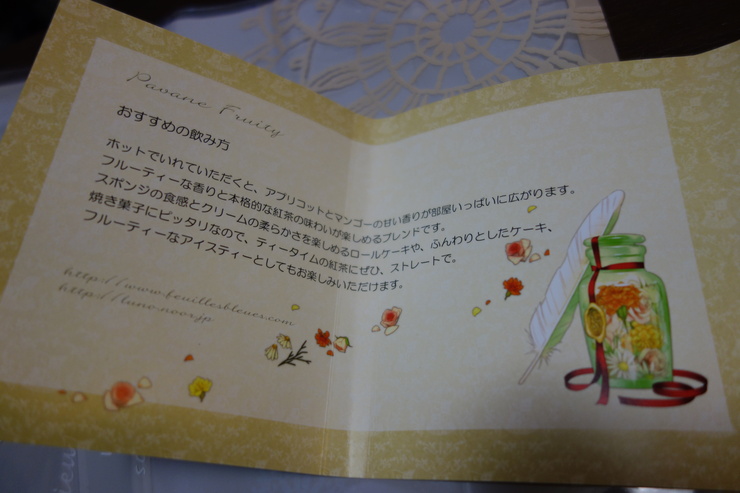 Pavane Fruity
おすすめの飲み方
ホットでいれていただくと、アプリコットとマンゴーの甘い香りが部屋いっぱいに広がります。
フルーティーな香りと本格的な紅茶の味わいが楽しめるブレンドです。
スポンジの食感とクリームの柔らかさを楽しめるロールケーキや、ふんわりとしたケーキ、
焼き菓子にピッタリなので、ティータイムの紅茶にぜひ、ストレートで。
フルーティーなアイスティーとしてもお楽しみいただけます。
http://www.feuillesbleues.com
http://luno.noor.jp